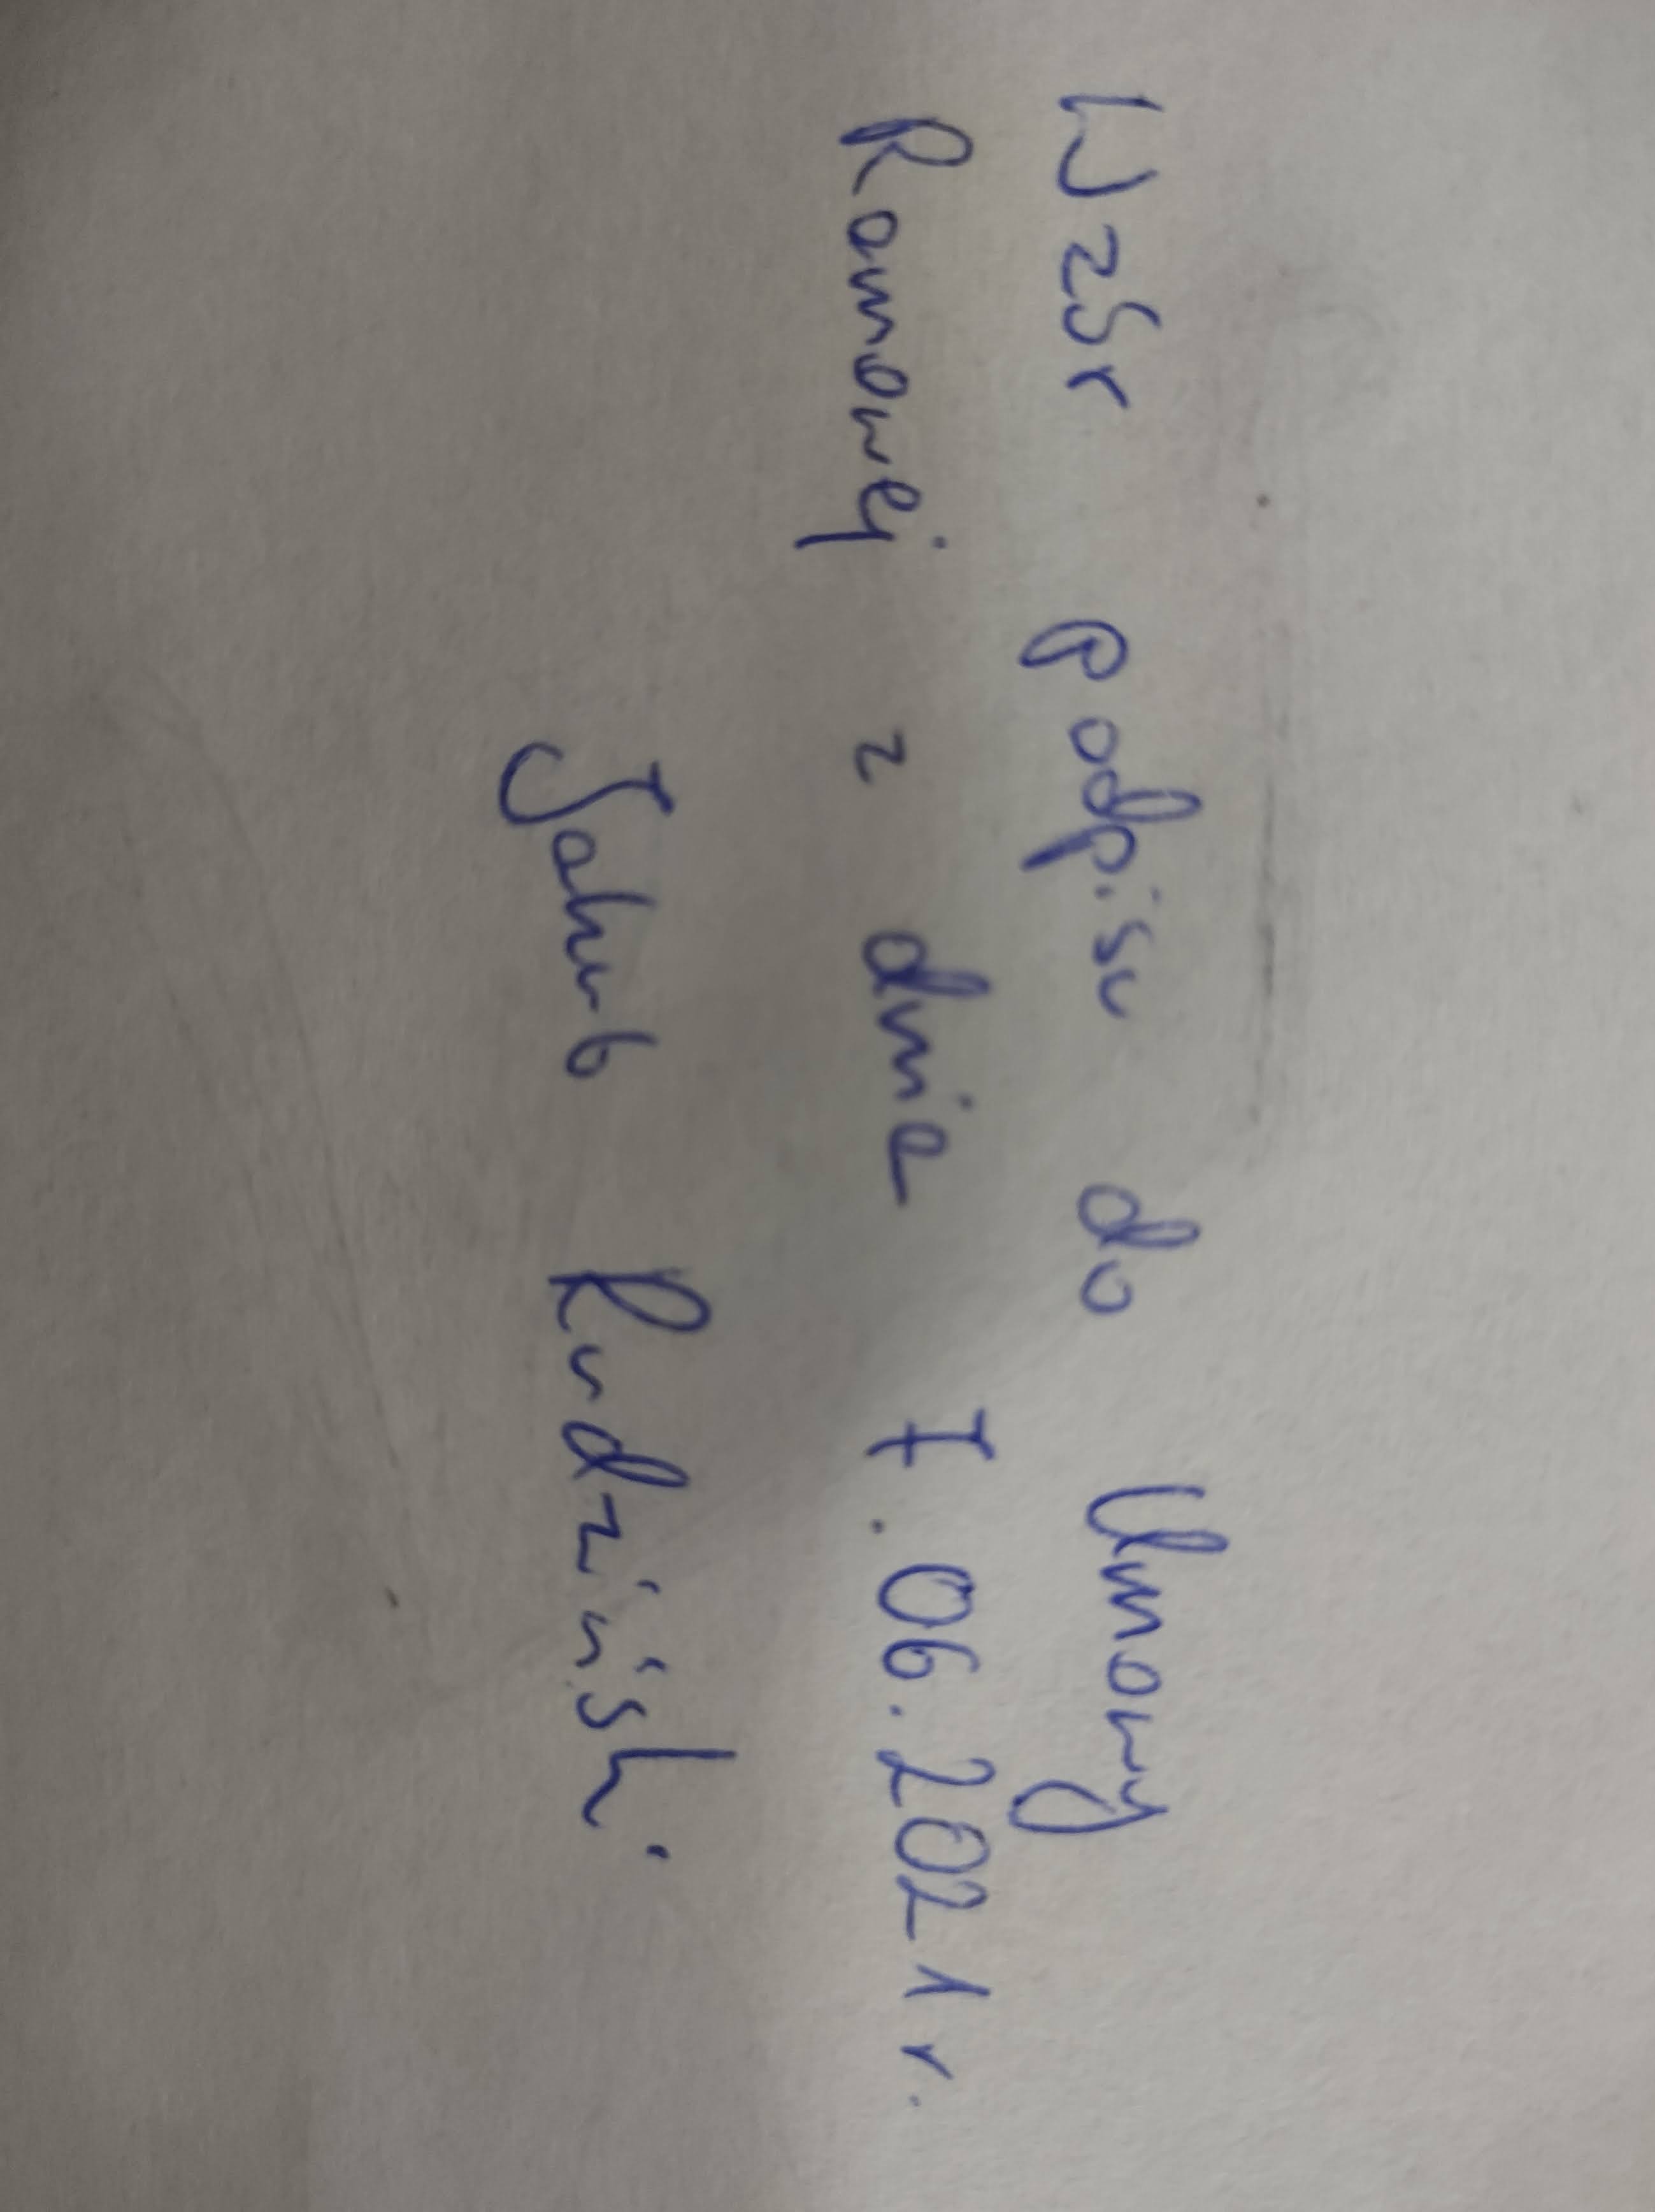 Wzór podpisu do Umowy
Ramowej z dnia 7.06.2021 r.
Jakub Rudziński